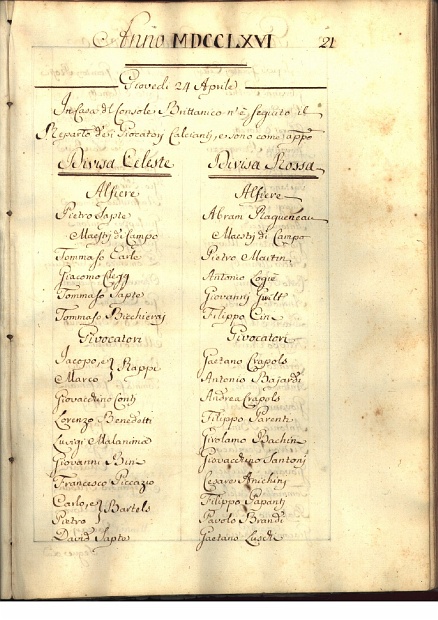 Anno MDCCLXVI 21
Giovedi 24 Aprile
In Casa del Console Brittanico n'è seguito il
Reparto de SSri Giocatori Calcianti, e sono come appo
Divisa Celeste
Alfiere
Pietro Sapte
Maestri di Campo
Tommaso Earle
Giacomo Clegg
Tommaso Sapte
Tommaso Bichieraj
Givocatori
Jacopo, e Rappi
Marco
Giovacchino Contj
Lorenzo Benedetti
Luvigi Malanima
Giovanni Bini
Francesco
Carlo, e Bartels
Pietro
David Sapte
Divisa Rossa
Alfiere
Abram Ragueneau
Maestrj di Campo
Pietro Martin
Antonio Logiè
Giovannj
Filippo
Givocatori
Gaetano Crapols
Antonio Bajardi
Andrea Crapols
Filippo Parenti
Girolamo Bachini
Giovacchino Santonj
Cesare Anichinj
Filippo Papantj
Pavolo Brandi
Gaetano